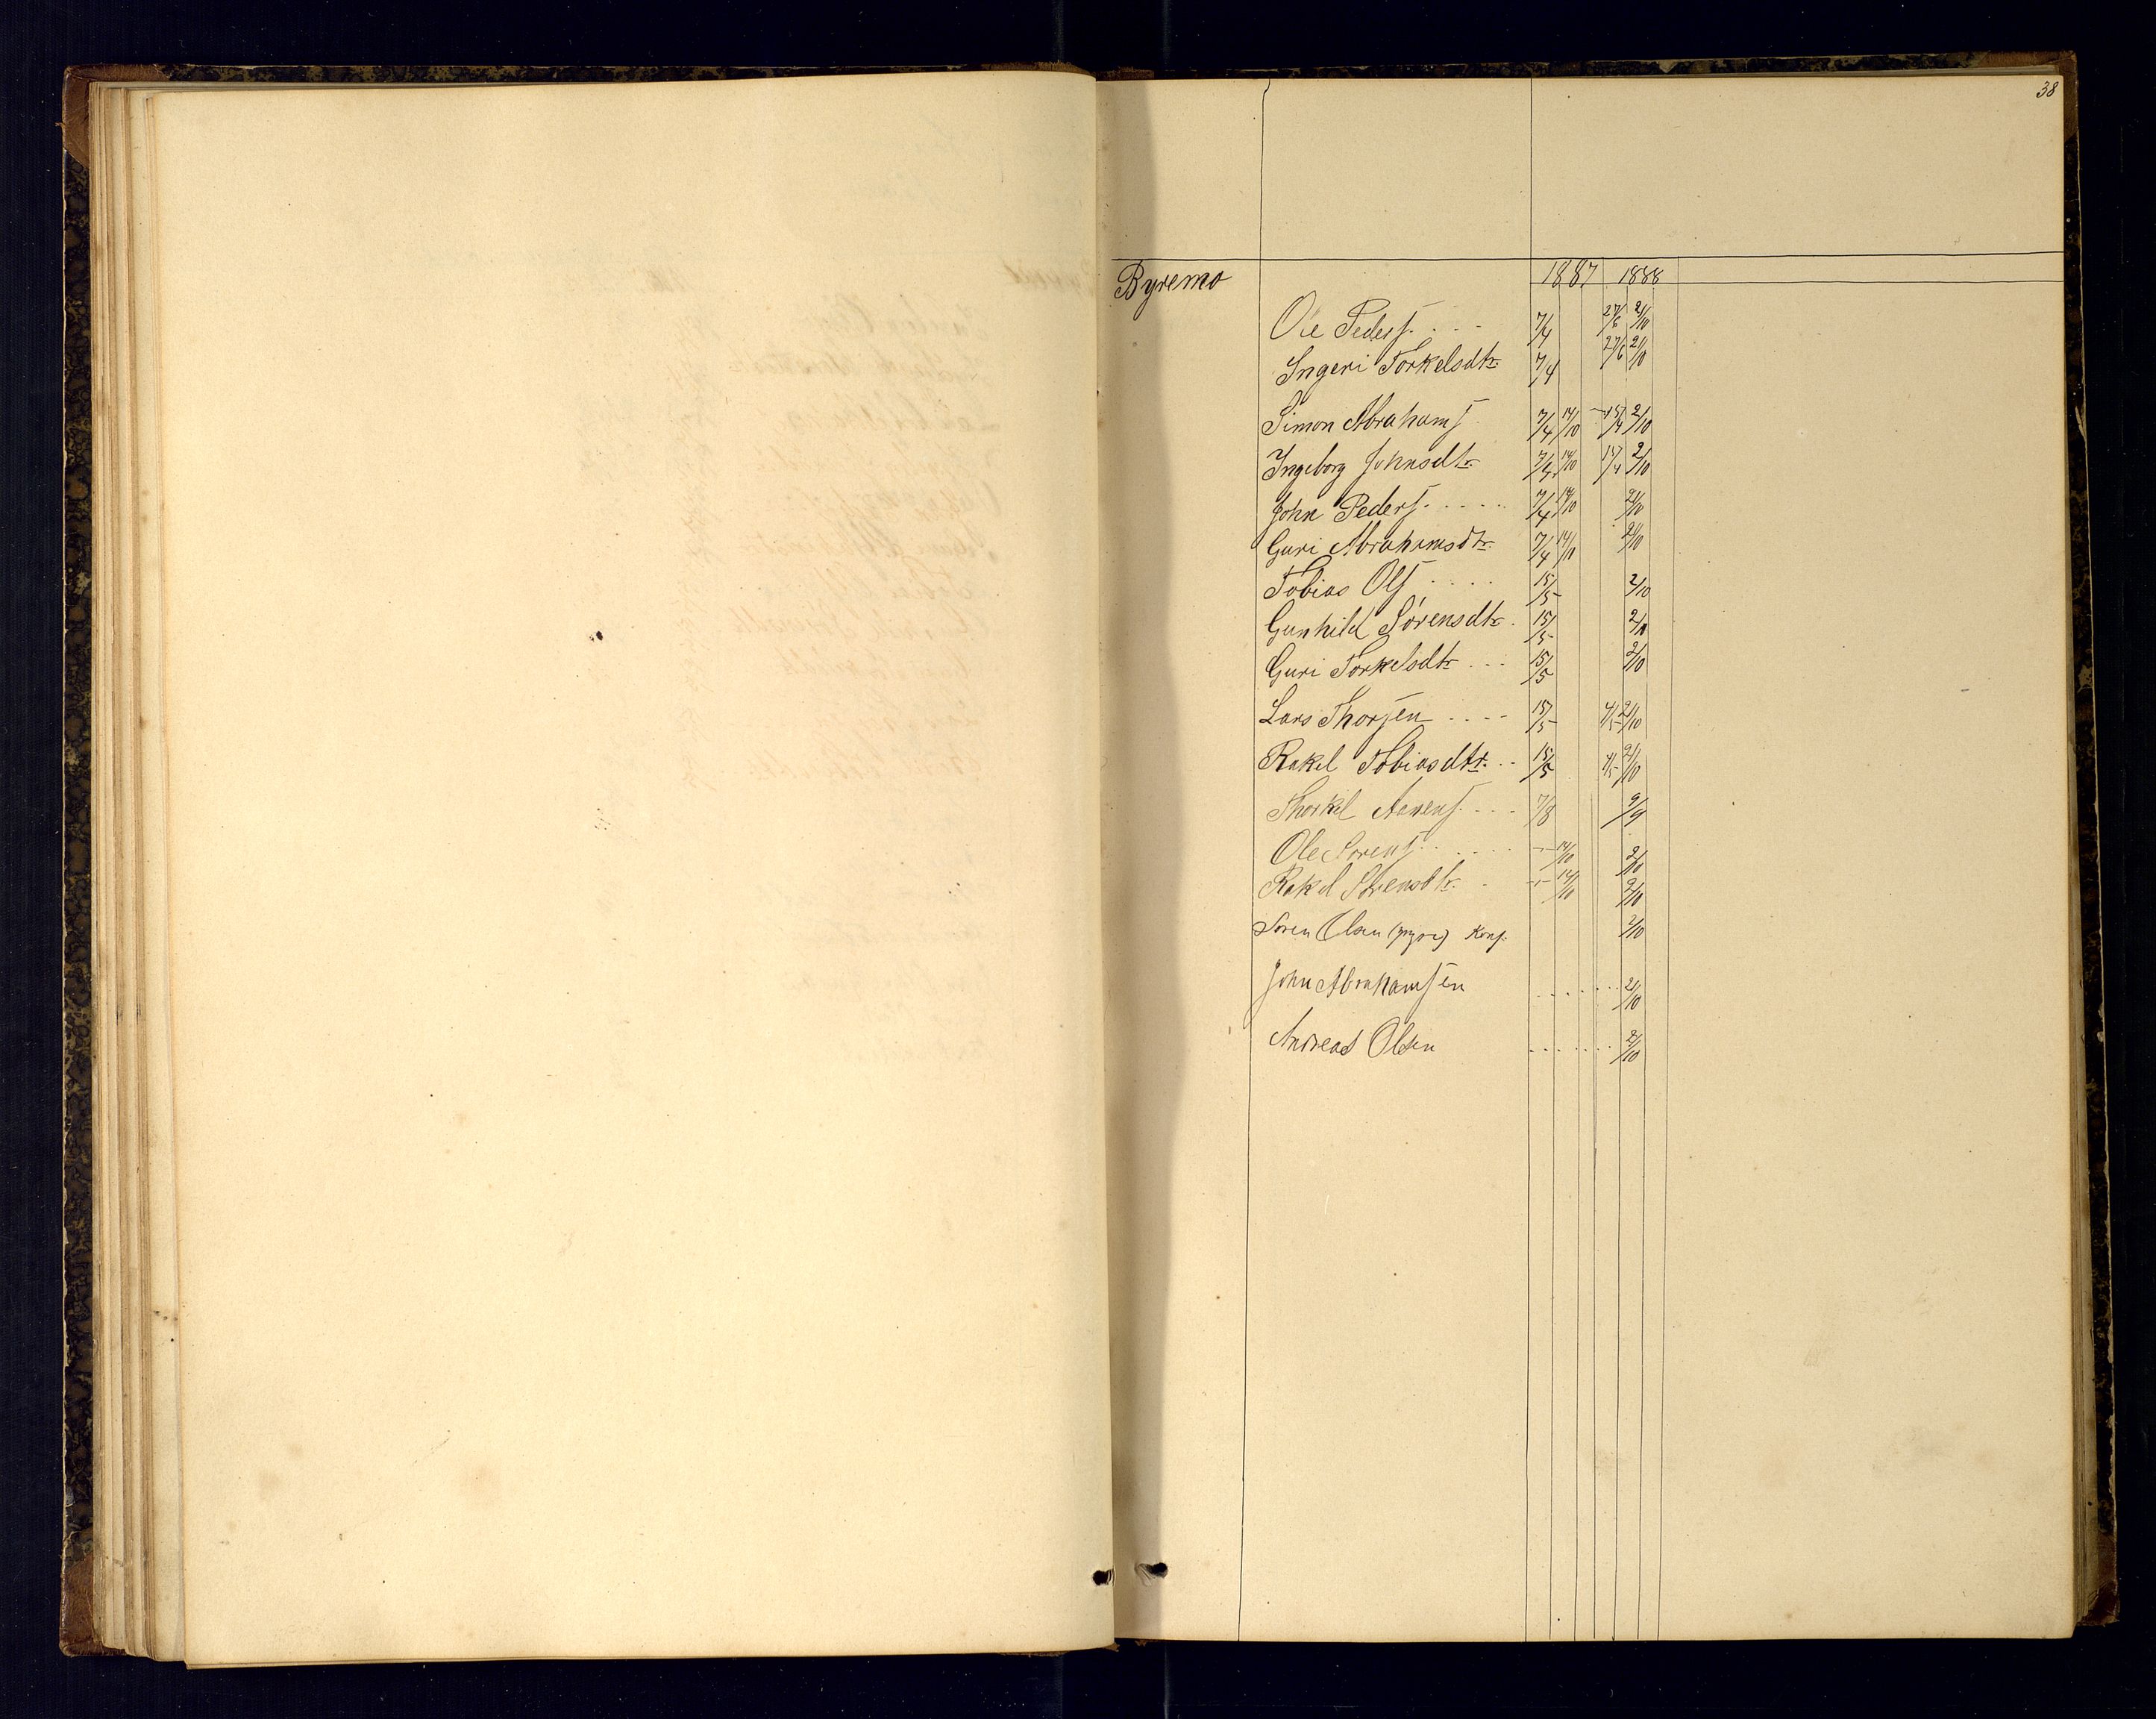 38
Byremo 1887 1888
Ole Peders. . . . 7/4 27/6 2/10
Ingeri Torkelsdtr 7/4 27/6 2/10
Simon Abrahams 7/4 14/10 15/4 2/10
Ingeborg Johnsdtr 7/4 14/10 15/4 2/10
John Peders. . . . . 7/4 14/10 2/10
Guri Abrahamsdtr. 7/4 14/10 2/10
Tobias Ols . . . . 15/5 2/10
Gunhild Sørensdtr. 15/5 2/10
Guri Torkelsdtr . . . 15/5 2/10
Lars Thorsen . . . . 15/5 4/5 2/10
Rakel Tobiasdtr. . . 15/5 4/5 2/10
Thorkel . . . . 7/8 9/9
Ole Sørens . . . . . 14/10 2/10
Rakel Sørensdtr. . 14/10 2/10
Søren Olsen (yngre) Konf. 2/10
John Abrahamsen . . . . . . 2/10
Andreas Olsen . . . . . . 2/10